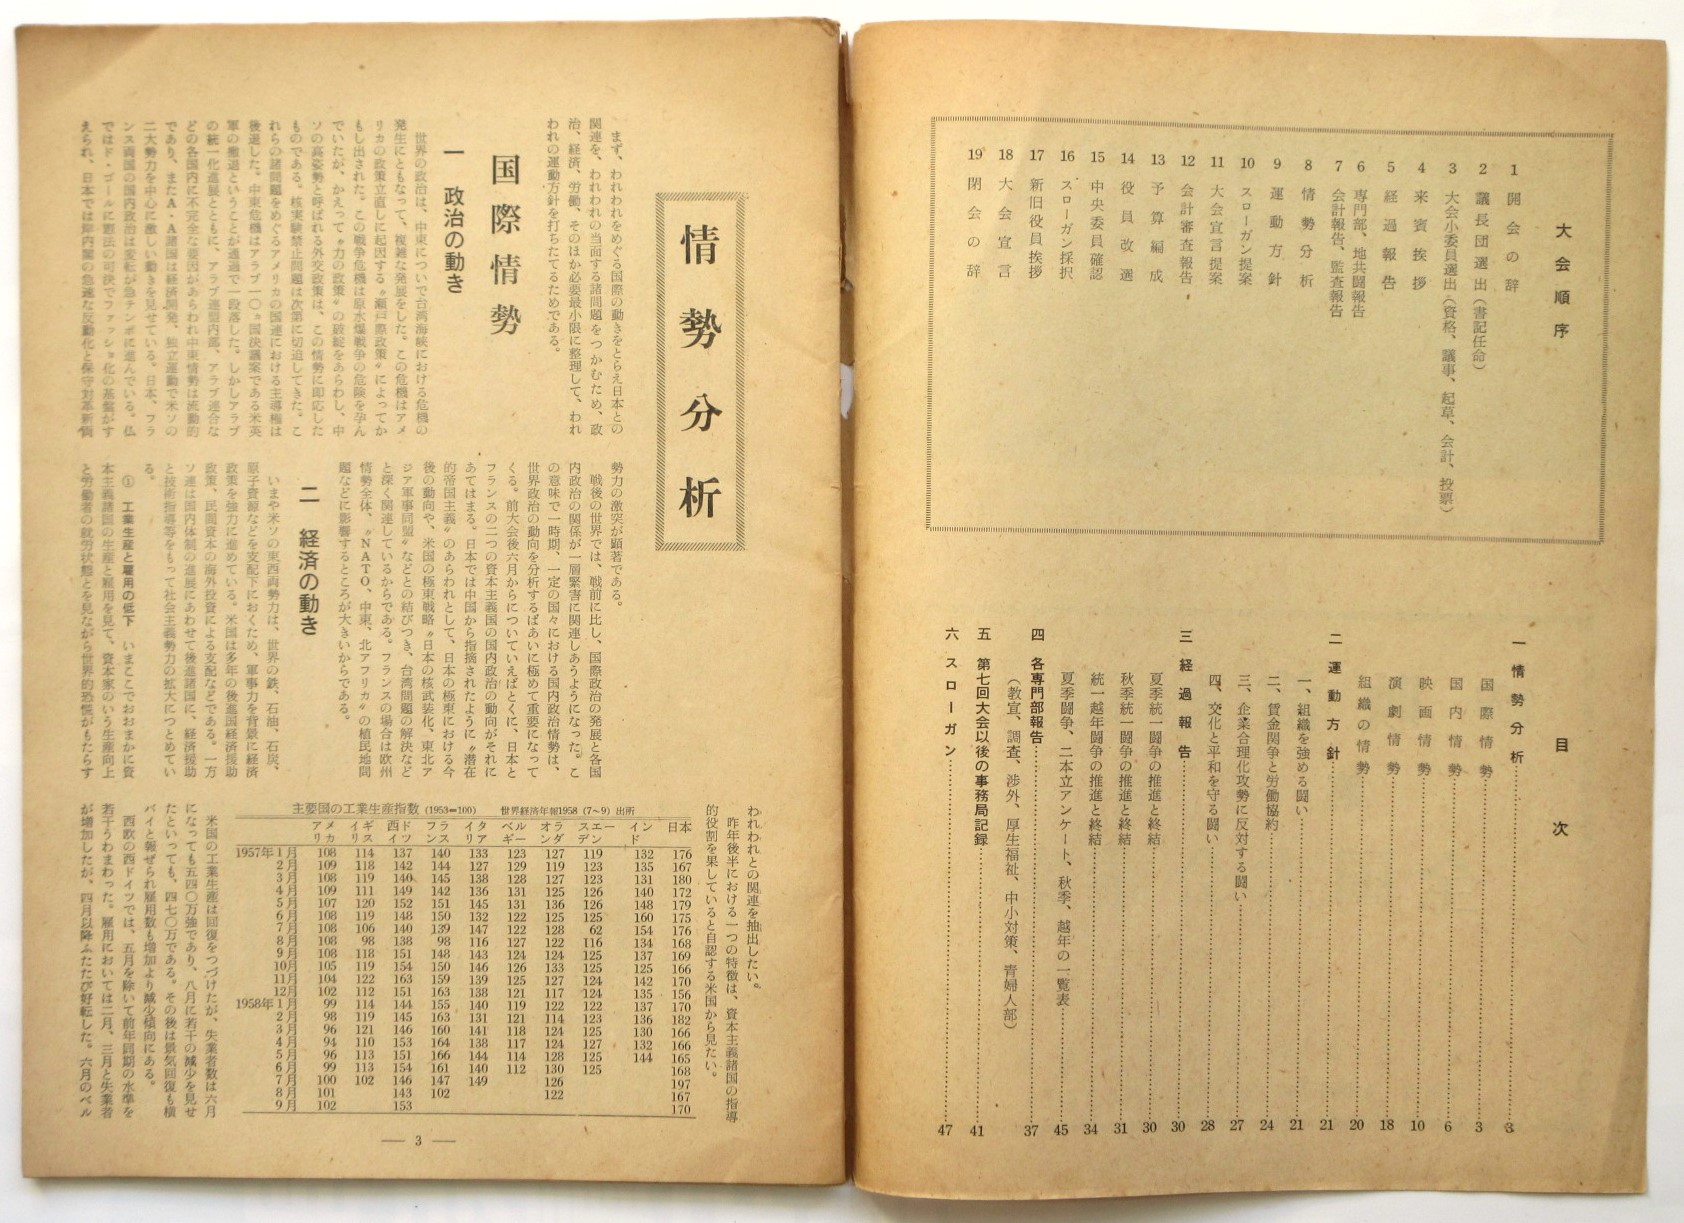 大会順序
1 開会の辞
2 議長団選出（書記任命）
3 大会小委員選出（資格、議事、起草、会計、投票）
4 来賓挨拶
5 経過報告
6 専門部、地共闘報告
7 会計報告、監査報告
8 情勢分析
9 運動方針
10 スローガン提案
11 大会宣言提案
12 会計審査報告
13 予算編成
14 役員改選
15 中央委員確認
16 スローガン採択
17 新旧役員挨拶
18 大会宣言
19 閉会の辞
目次
一 情勢分析……3
国際情勢……3
国内情勢……6
映画情勢……10
演劇情勢……18
組織の情勢……20
二 運動方針……21
一、組織を強める闘い……21
二、賃金闘争と労働協約……24
三、企業合理化攻勢に反対する闘い……27
四、文化と平和を守る闘い……28
三 経過報告……30
夏季統一闘争の推進と終結……30
秋季統一闘争の推進と終結……31
統一越年闘争の推進と終結……34
夏季闘争、二本立アンケート、秋季、越年の一覧表……45
四 各専門部報告……37
（教宣、調査、渉外、厚生福祉、中小対策、青婦人部）
五 第七回大会以後の事務局記録……41
六 スローガン……47
情勢分析
まず、われわれをめぐる国際の動きをとらえ日本との
関連を、われわれの当面する諸問題をつかむため、政
治、経済、労働、そのほか必要最小限に整理して、われ
われの運動方針を打ちたてるためである。
国際情勢
一 政治の動き
世界の政治は、中東についで台湾海峡における危機の
発生にともなって、複雑な発展をした。この危機はアメ
リカの政策立直しに起因する〝瀬戸際政策〟によってか
もし出された。この戦争危機は原水爆戦争の危険を孕ん
でいたが、かえって〝力の政策〟の破綻をあらわし、中
ソの高姿勢と呼ばれる外交政策は、この情勢に即応した
ものである。核実験禁止問題は次第に切迫してきた。こ
れらの諸問題をめぐるアメリカの国連における主導権は
後退した。中東危機はアラブ一〇ヵ国決議案である米英
軍の撤退ということが通過で一段落した。しかしアラブ
の統一化進展とともに、アラブ連盟内部、アラブ連合な
どの各国内に不完全な要因があらわれ中東情勢は流動的
であり、またA・A諸国は経済開発、独立運動で米ソの
二大勢力を中心に激しい動きを見せている。日本、フラ
ンス両国の国内政治は変転が急テンポに進んでいる。仏
ではド・ゴールに憲法の可決でファッショ化の基盤がす
えられ、日本では岸内閣の急速な反動化と保守対革新両
勢力の激突が顕著である。
戦後の世界では、戦前に比し、国際政治の発展と各国
内政治の関係が一層緊害に関連しあうようになった。こ
の意味で一時期、一定の国々における国内政治情勢は、
世界政治の動向を分析するばあいに極めて重要になって
くる。前大会後六月からについていえばとくに、日本と
フランスの二つの資本主義国の国内政治の動向がそれに
あてはまる。日本では中国から指摘されたように〝潜在
的帝国主義〟のあらわれとして、日本の極東における今
後の動向や、米国の極東戦略〝日本の核武装化、東北ア
ジア軍事同盟〟などとの結びつき、台湾問題の解決など
と深く関連しているからである。フランスの場合は欧州
情勢全体、〝NATO、中東、北アフリカ〟の植民地問
題などに影響するところが大きいからである。
二 経済の動き
いまや米ソの東西両勢力は、世界の鉄、石油、石炭、
原子資源などを支配下におくため、軍事力を背景に経済
政策を強力に進めている。米国は多年の後進国経済援助
政策、民間資本の海外投資による支配などである。一方
ソ連は国内体制の進展にあわせて後進諸国に、経済援助
と技術指導等をもって社会主義勢力の拡大につとめてい
る。
① 工業生産と雇用の低下　いまここでおおまかに資
本主義諸国の生産と雇用を見て、資本家のいう生産向上
と労働者の就労状態とを見ながら世界的恐慌がもたらす
われわれとの関連を抽出したい。
昨年後半における一つの特徴は、資本主義諸国の指導
的役割を果していると自認する米国から見たい。
主要国の工業生産指数（1953＝100） 世界経済年報1958（7〜9）出所
アメリカ イギリス 西ドイツ フランス イタリア ベルギー オランダ スエーデン インド 日本
1957年1月 108 114 137 140 133 123 127 119 132 176
2月 109 118 142 144 127 129 119 123 135 167
3月 108 119 146 145 138 128 127 123 131 180
4月 109 111 149 142 136 131 125 126 140 172
5月 107 120 152 151 145 131 136 126 148 179
6月 108 119 148 150 132 122 125 125 160 175
7月 108 106 140 139 147 122 128 62 154 176
8月 108 98 138 98 116 127 122 116 134 168
9月 108 118 151 148 143 124 124 125 137 169
10月 105 119 154 150 146 126 133 125 125 166
11月 104 122 163 159 139 125 127 124 142 170
12月 102 112 151 163 138 121 117 124 135 156
1958年1月 99 114 144 155 140 119 122 122 137 170
2月 98 119 145 163 131 121 114 123 136 182
3月 96 121 146 160 141 118 124 125 130 166
4月 94 110 153 164 138 117 124 127 132 166
5月 96 113 151 166 144 114 128 125 144 165
6月 99 113 154 161 140 112 130 125 168
7月 100 102 146 147 149 126 197
8月 101 143 102 122 167
9月 102 153 170
米国の工業生産は回復をつづけたが、失業者数は六月
になっても五四〇万強であり、八月に若干の減少を見せ
たといっても、四七〇万である。その後は景気回復も横
バイと報ぜられ雇用数も増加より減少傾向にある。
西欧の西ドイツでは、五月を除いて前年同期の水準を
若干うわまわった。雇用においては二月、三月と失業者
が増加したが、四月以降ふたたび好転した。六月のベル
— 3 —